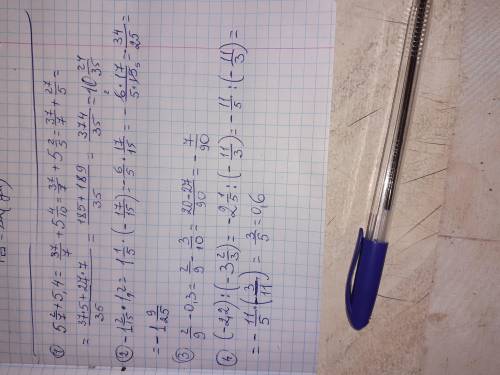 ① 5 2/7 + 5,4 = 37/7 + 5 4/10 = 37/7 + 5 2/5 = 37/7 + 27/5 =
= (37·5 + 27·7)/35 = (185 + 189)/35 = 374/35 = 10 24/35
② -1 2/15 · 1,2 = 1 1/5 · (- 17/15) = - 6/5 · 17/15 = - (6·17)/(5·15) = - 34/25 =
= -1 9/25
③ 2/9 - 0,3 = 2/9 - 3/10 = (20-27)/90 = - 7/90
④ (-2,2) : (-3 2/3) = -2 1/5 : (- 11/3) = - 11/5 : (- 11/3) =
= - 11/5 · (- 3/11) = 3/5 = 0,6